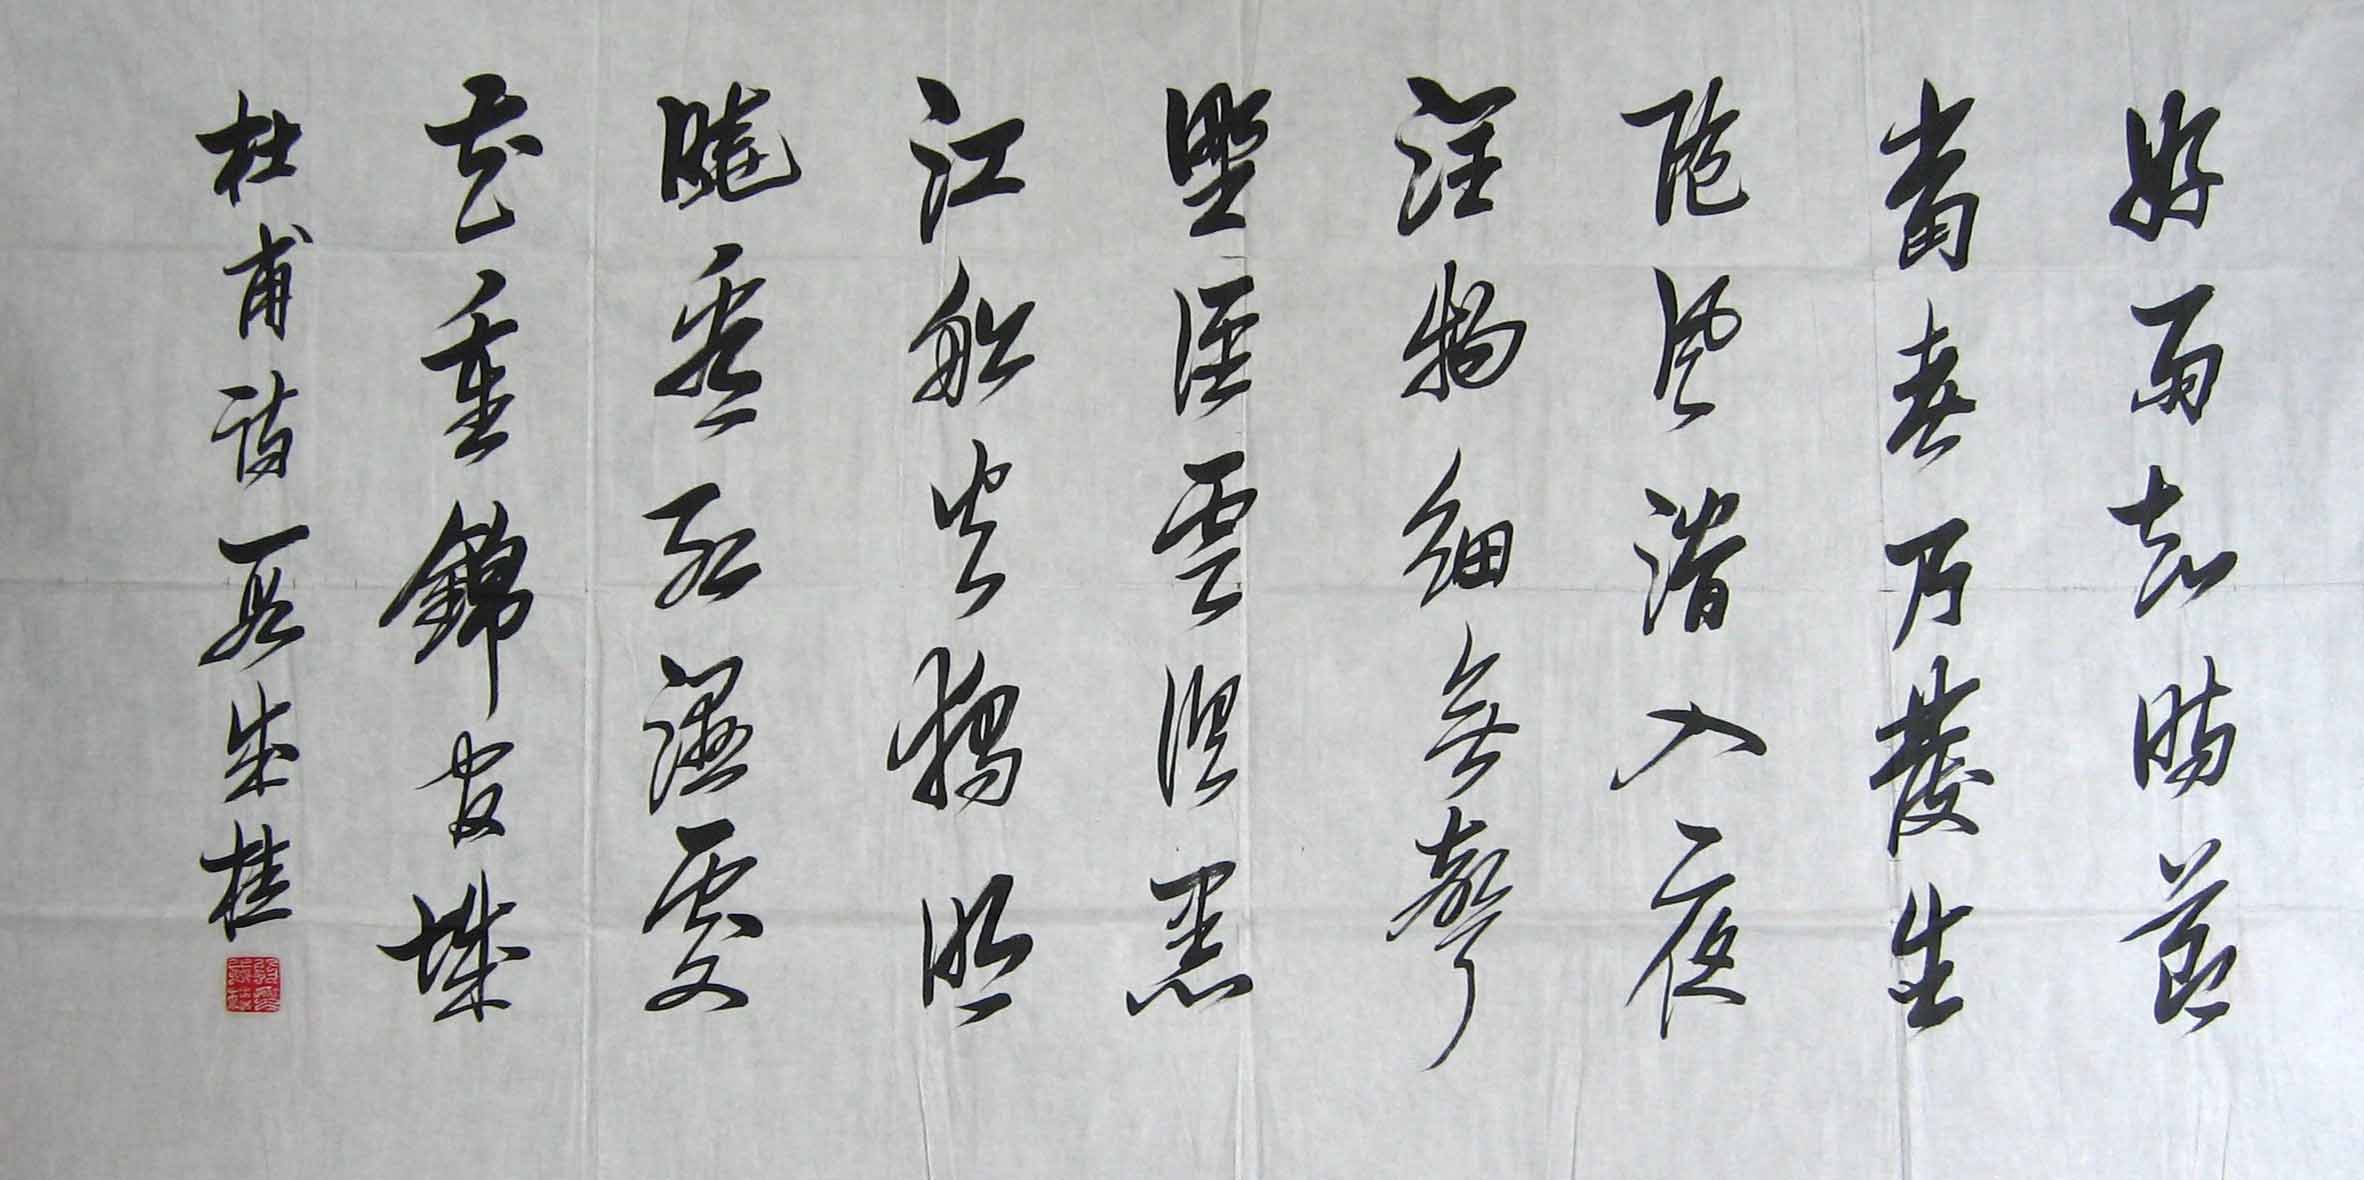 好雨知時節
當春乃發生
隨風潛入夜
潤物細無聲
野徑雲俱黑
江船火獨明
曉看紅濕處
花重錦官城
杜甫詩段成桂